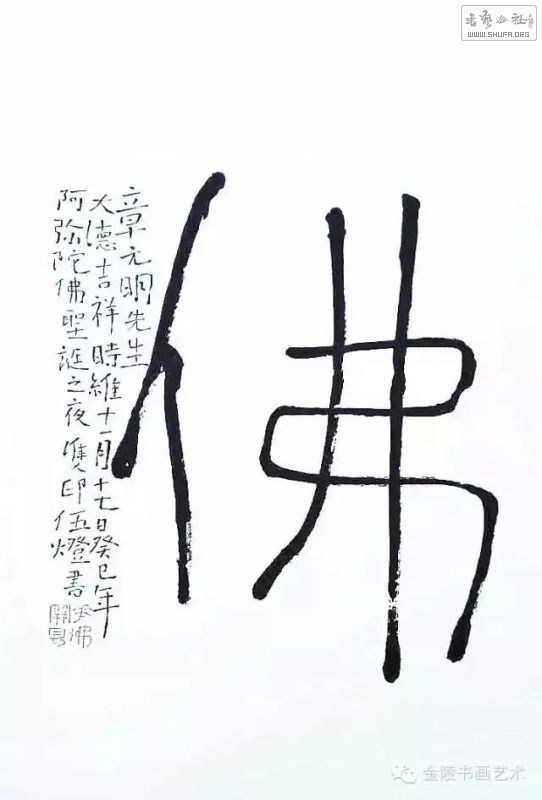 佛
章元明先生
大德吉祥時維十一月十七日癸巳年
阿弥陀佛聖誕之夜雙印伍燈書
WWW.SHUFA.ORG
金陵书画艺术